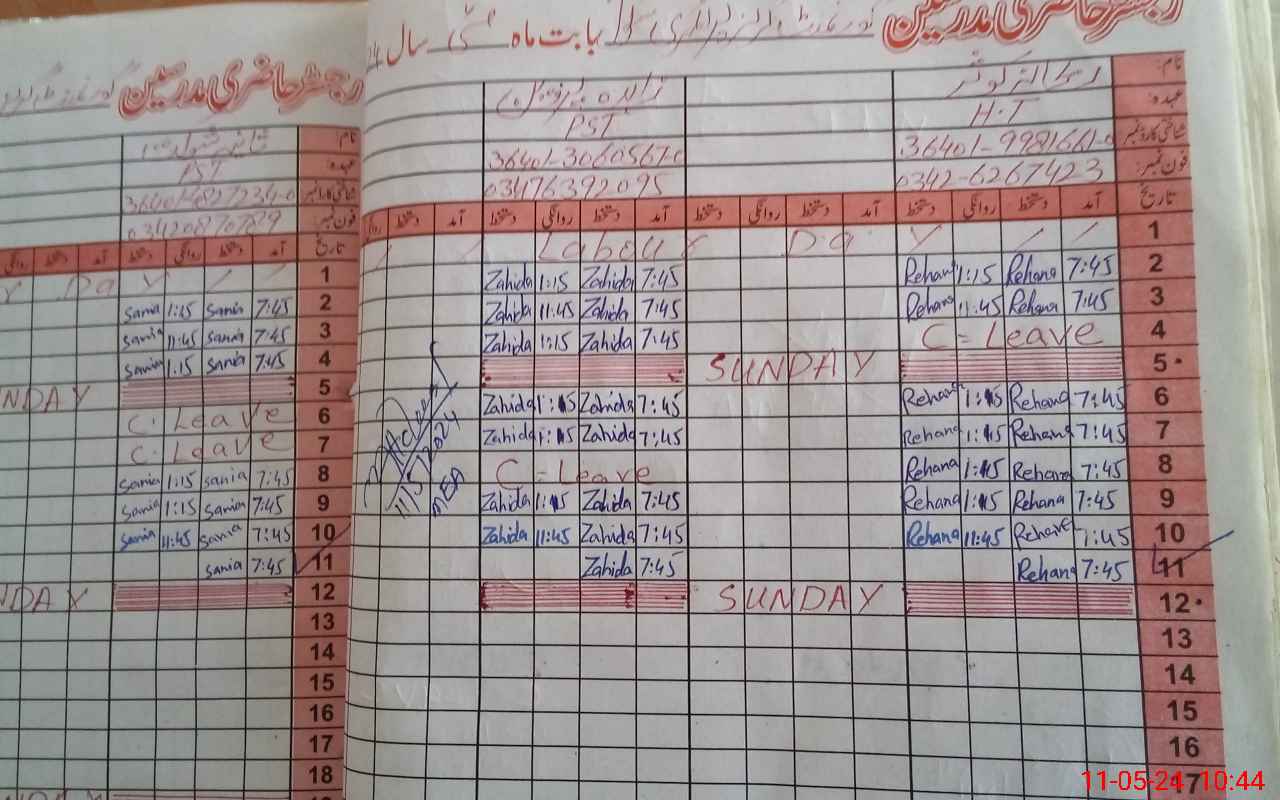 رجسٹر حاضری مدرسین بابت ماہ مئی سال 24
نام:
عہدہ: H.T PST
شناختی کارڈ نمبر 36401-9981661-0 36401-3060567-0
فون نمبر: 0342-6267423 03476392095
تاریخ آمد دستخط روانگی دستخط آمد دستخط روانگی دستخط آمد دستخط روانگی دستخط آمد دستخط
1 Labour Day
2 7:45 Rehana 1:15 Rehana 7:45 Zahida 1:15 Zahida
3 7:45 Rehana 11:45 Rehana 7:45 Zahida 11:45 Zahida
4 C=Leave 7:45 Zahida 1:15 Zahida
5 SUNDAY
6 7:45 Rehana 1:15 Rehana 7:45 Zahida 1:15 Zahida
7 7:45 Rehana 1:15 Rehana 7:45 Zahida 1:15 Zahida
8 7:45 Rehana 1:15 Rehana C=Leave
9 7:45 Rehana 1:15 Rehana 7:45 Zahida 1:15 Zahida
10 7:45 Rehana 11:45 Rehana 7:45 Zahida 11:45 Zahida
11 7:45 Rehana 7:45 Zahida
12 SUNDAY
13
14
15
16
17
11/5/2024
MEA
رجسٹر حاضری مدرسین
نام:
عہدہ: PST
شناختی کارڈ نمبر
فون نمبر: 03420870789
تاریخ آمد دستخط روانگی دستخط آمد دستخط روانگی
1 Day
2 7:45 Sania 1:15 Sania
3 7:45 Sania 11:45 Sania
4 7:45 Sania 1:15 Sania
5 NDAY
6 C. Leave
7 C. Leave
8 7:45 Sania 1:15 Sania
9 7:45 Sania 1:15 Sania
10 7:45 Sania 11:45 Sania
11 7:45 Sania
12 NDAY
13
14
15
16
17
18
11-05-24 10:44